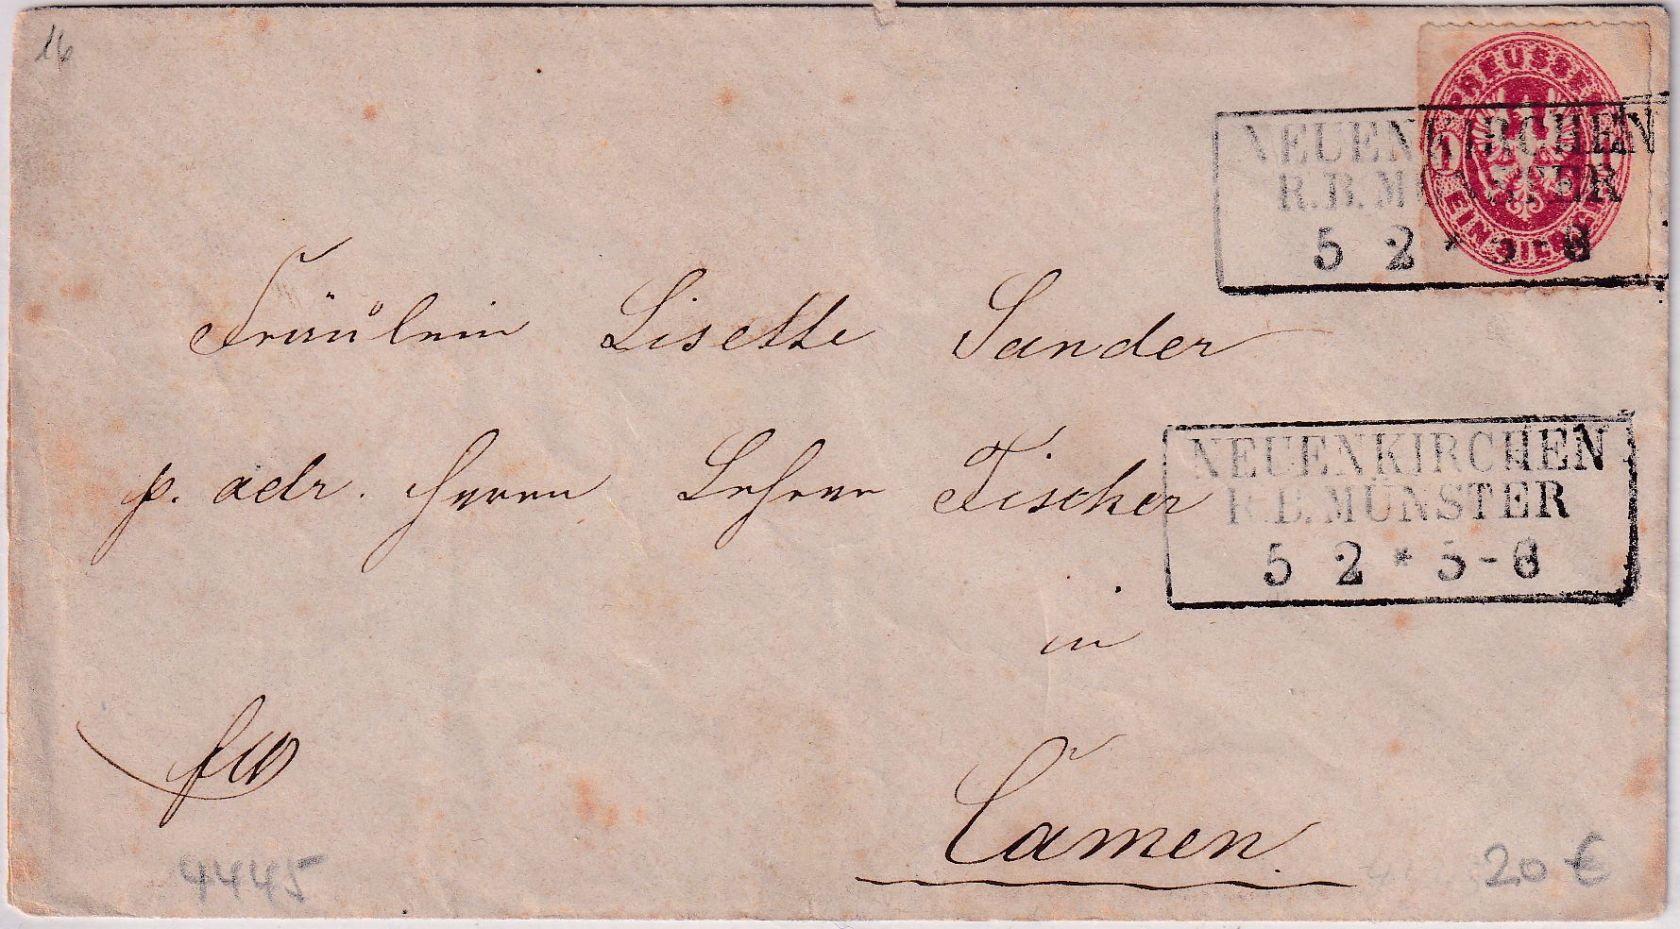 16
PREUSSEN
EIN SILB. GR.
1
NEUENKIRCHEN
R.B. MÜNSTER
5 2 * 5-6
Fräulein Lisette Sander
p. adr. Herrn Lehrer Fischer
NEUENKIRCHEN
R.B. MÜNSTER
5 2 * 5-6
in
Camen
4445
20 €